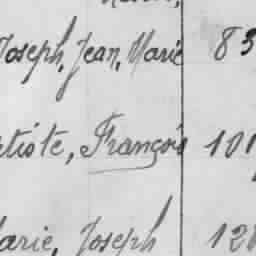 Joseph, Jean, Marie 83
tiste, François 101
arie, Joseph 12